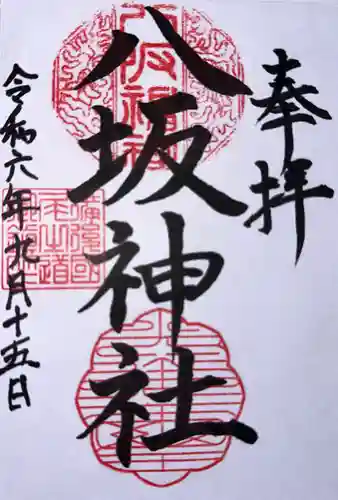 奉拝
八坂神社
令和六年九月十五日